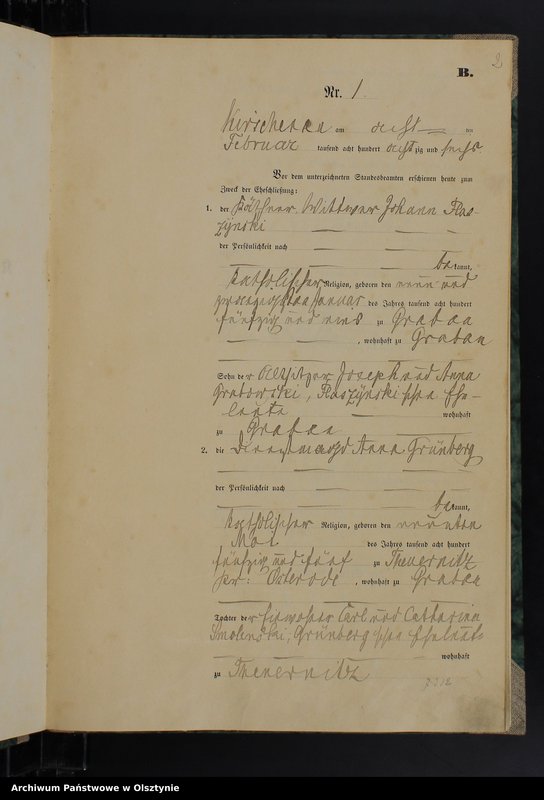 2
B.
Nr. 1.
am acht ten
Februar tausend acht hundert achtzig und sechs.
Vor dem unterzeichneten Standesbeamten erschienen heute zum
Zweck der Eheschließung:
1. der Käthner, Wittwer Johann Flas-
zynski
der Persönlichkeit nach
bekannt,
katholischer Religion, geboren den neun und
zwanzigsten Januar des Jahres tausend acht hundert
fünfzig und eins zu Grabau
, wohnhaft zu Grabau
Sohn der Altsitzer Joseph und Anna
Grabowski, Flaszynskischen Ehe-
leute wohnhaft
zu Grabau
2. die Dienstmagd Anna Grünberg
der Persönlichkeit nach
bekannt,
katholischer Religion, geboren den neunten
Mai des Jahres tausend acht hundert
fünfzig und fünf zu Theuernitz
Kr: Osterode, wohnhaft zu Grabau
Tochter der Einwohner Carl und Catharina
Smolenski, Grünbergschen Eheleute
wohnhaft
zu Theuernitz
Archiwum Państwowe w Olsztynie